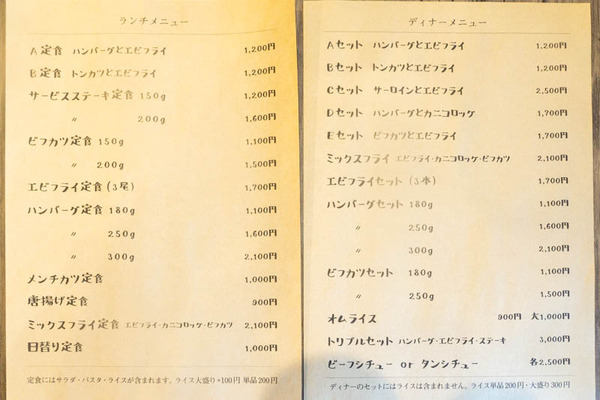 ランチメニュー
A定食 ハンバーグとエビフライ 1,200円
B定食 トンカツとエビフライ 1,200円
サービスステーキ定食 150g 1,200円
〃 200g 1,600円
ビフカツ定食 150g 1,100円
〃 200g 1,500円
エビフライ定食 (3尾) 1,700円
ハンバーグ定食 180g 1,100円
〃 250g 1,600円
〃 300g 2,100円
メンチカツ定食 1,000円
唐揚げ定食 900円
ミックスフライ定食 エビフライ・カニコロッケ・ビフカツ 2,100円
日替り定食 1,000円
定食にはサラダ・パスタ・ライスが含まれます。ライス大盛り+100円 単品200円
ディナーメニュー
Aセット ハンバーグとエビフライ 1,200円
Bセット トンカツとエビフライ 1,200円
Cセット サーロインとエビフライ 2,500円
Dセット ハンバーグとカニコロッケ 1,700円
Eセット ビフカツとエビフライ 1,700円
ミックスフライ エビフライ・カニコロッケ・ビフカツ 2,100円
エビフライセット (3本) 1,700円
ハンバーグセット 180g 1,100円
〃 250g 1,600円
〃 300g 2,100円
ビフカツセット 180g 1,100円
〃 250g 1,500円
オムライス 900円 大1,000円
トリプルセット ハンバーグ・エビフライ・ステーキ 3,000円
ビーフシチュー or タンシチュー 各2,500円
ディナーのセットにはライスは含まれません。ライス単品200円・大盛り300円